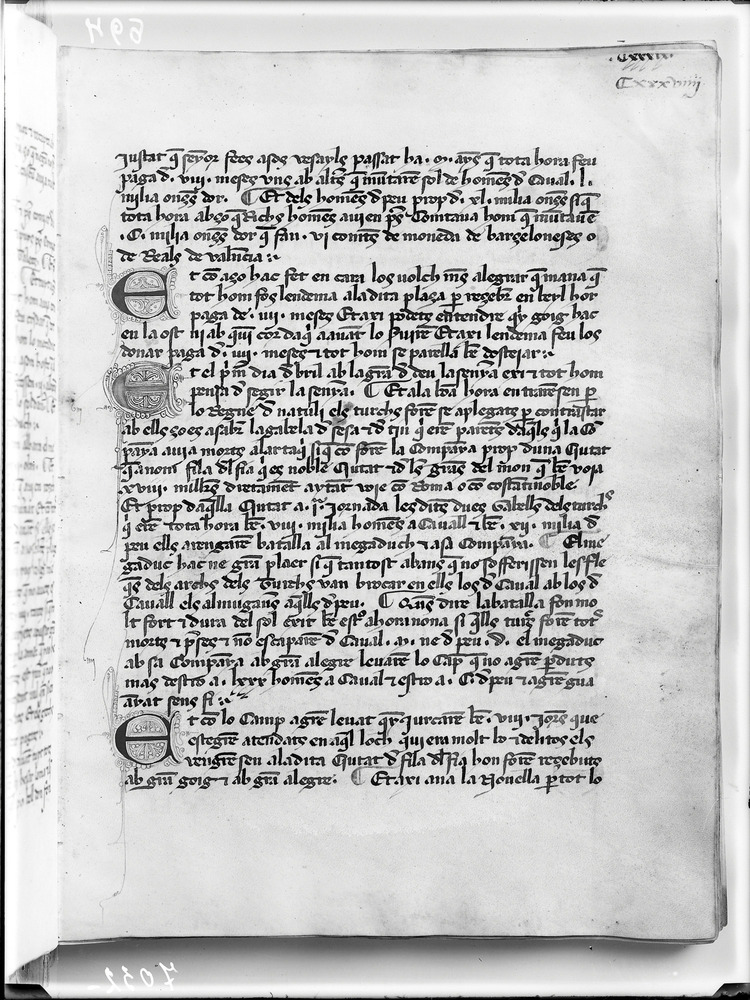 694
.Cxxxix.
Cxxxviiij
justat q̄ senyor fees asos vesayls passat ha .M. ayns q̄ tota hora feu
paga d̄ .viii. meses vns ab altr̄s q̄ muntarē sol de homēs d̄ Caual .l.
milia onçes dor. ¶ Et dels homēs d̄peu prop d̄ .xl. milia onçes si q̄
tota hora abço q̄ Richs homēs auien p̄s Comtaua hom q̄ muntauē
.C. milia onçes dor q̄ fan .vi comtes de moneda de barçeloneses o
de Reals de valēncia :~
Et cō aço hac fet en cara los volch mes alegrar q̄ mana q̄
tot hom fos lendema aladita plaça p̄ reçebr̄ en beyl hor
paga de .iiii. meses Et axi podets entendre q̄ny goig hac
en la ost ni ab qui cor daq̄ aauāt lo seruirē Et axi lendema feu los
donar paga d̄ .iiii. meses & tot hom se parella bē de ostejar :~
Et el p̄m dia d̄bril ab la grā d̄ deu la senyā exi & tot hom
pensa d̄ segir la senyā. ¶ Et ala bōa hora en traresen p̄
lo Regne d̄ natuli els turchs forē se aplegats p̄ contrastar
ab ells ço es asaber la gabella d̄ sesa & d̄ tin q̄ erē parēts daq̄ls q̄ la Cō
panya auia morts al artaq̄ si q̄ cō forē la Companya prop duna Ciutat
q̄ a nom fila dl̄fia q̄ es noble Ciutat & d̄ les grās del mon q̄ bē voga
.xviii. milles dretamēt aytāt voje cō Roma o cō costātinoble.
Et prop d̄aq̄lla Ciutat a .i. jornada les dites dues Gabells dels turchs
q̄ erē tota hora bē .viii. milia homēs a Cauall & bē .xii. milia d̄
peu ells arengarē batalla al megaduch & a sa Compāya. ¶ El me
gaduc hac ne grā plaer si q̄ tantost abans q̄ no sofferissen les fle
q̄s dels archs dels Turchs van brocar en ells los d̄ Caual ab los d̄
Cauall els almugauēs a q̄lls d̄peu. ¶ Queus dire la batalla fon mo
lt fort & dura del sol exit bē estro a hora nona si q̄lls turcs forē tots
morts & p̄ses & no escaparē d̄ Caual .M. ne d̄ peu .D. el megaduc
ab sa Companya ab grā alegre leuarē lo Cāp q̄ no agrē pduts
mas destro a .lxxx homēs a Caual & estro a .C. d̄peu & agrē gua
āyat sens fi :~
Et cō lo Camp agrē leuat qȳ jurcarē bē .viii. jorns que
estegrē atendats en aq̄l loch qui era molt bo & delitos els
vengrēsen aladita Ciutat d̄ fila dl̄fiā hon forē reçebuts
ab grā goig & ab grā alegre. ¶ Et axi ana la Nouella p̄ tot lo
7032